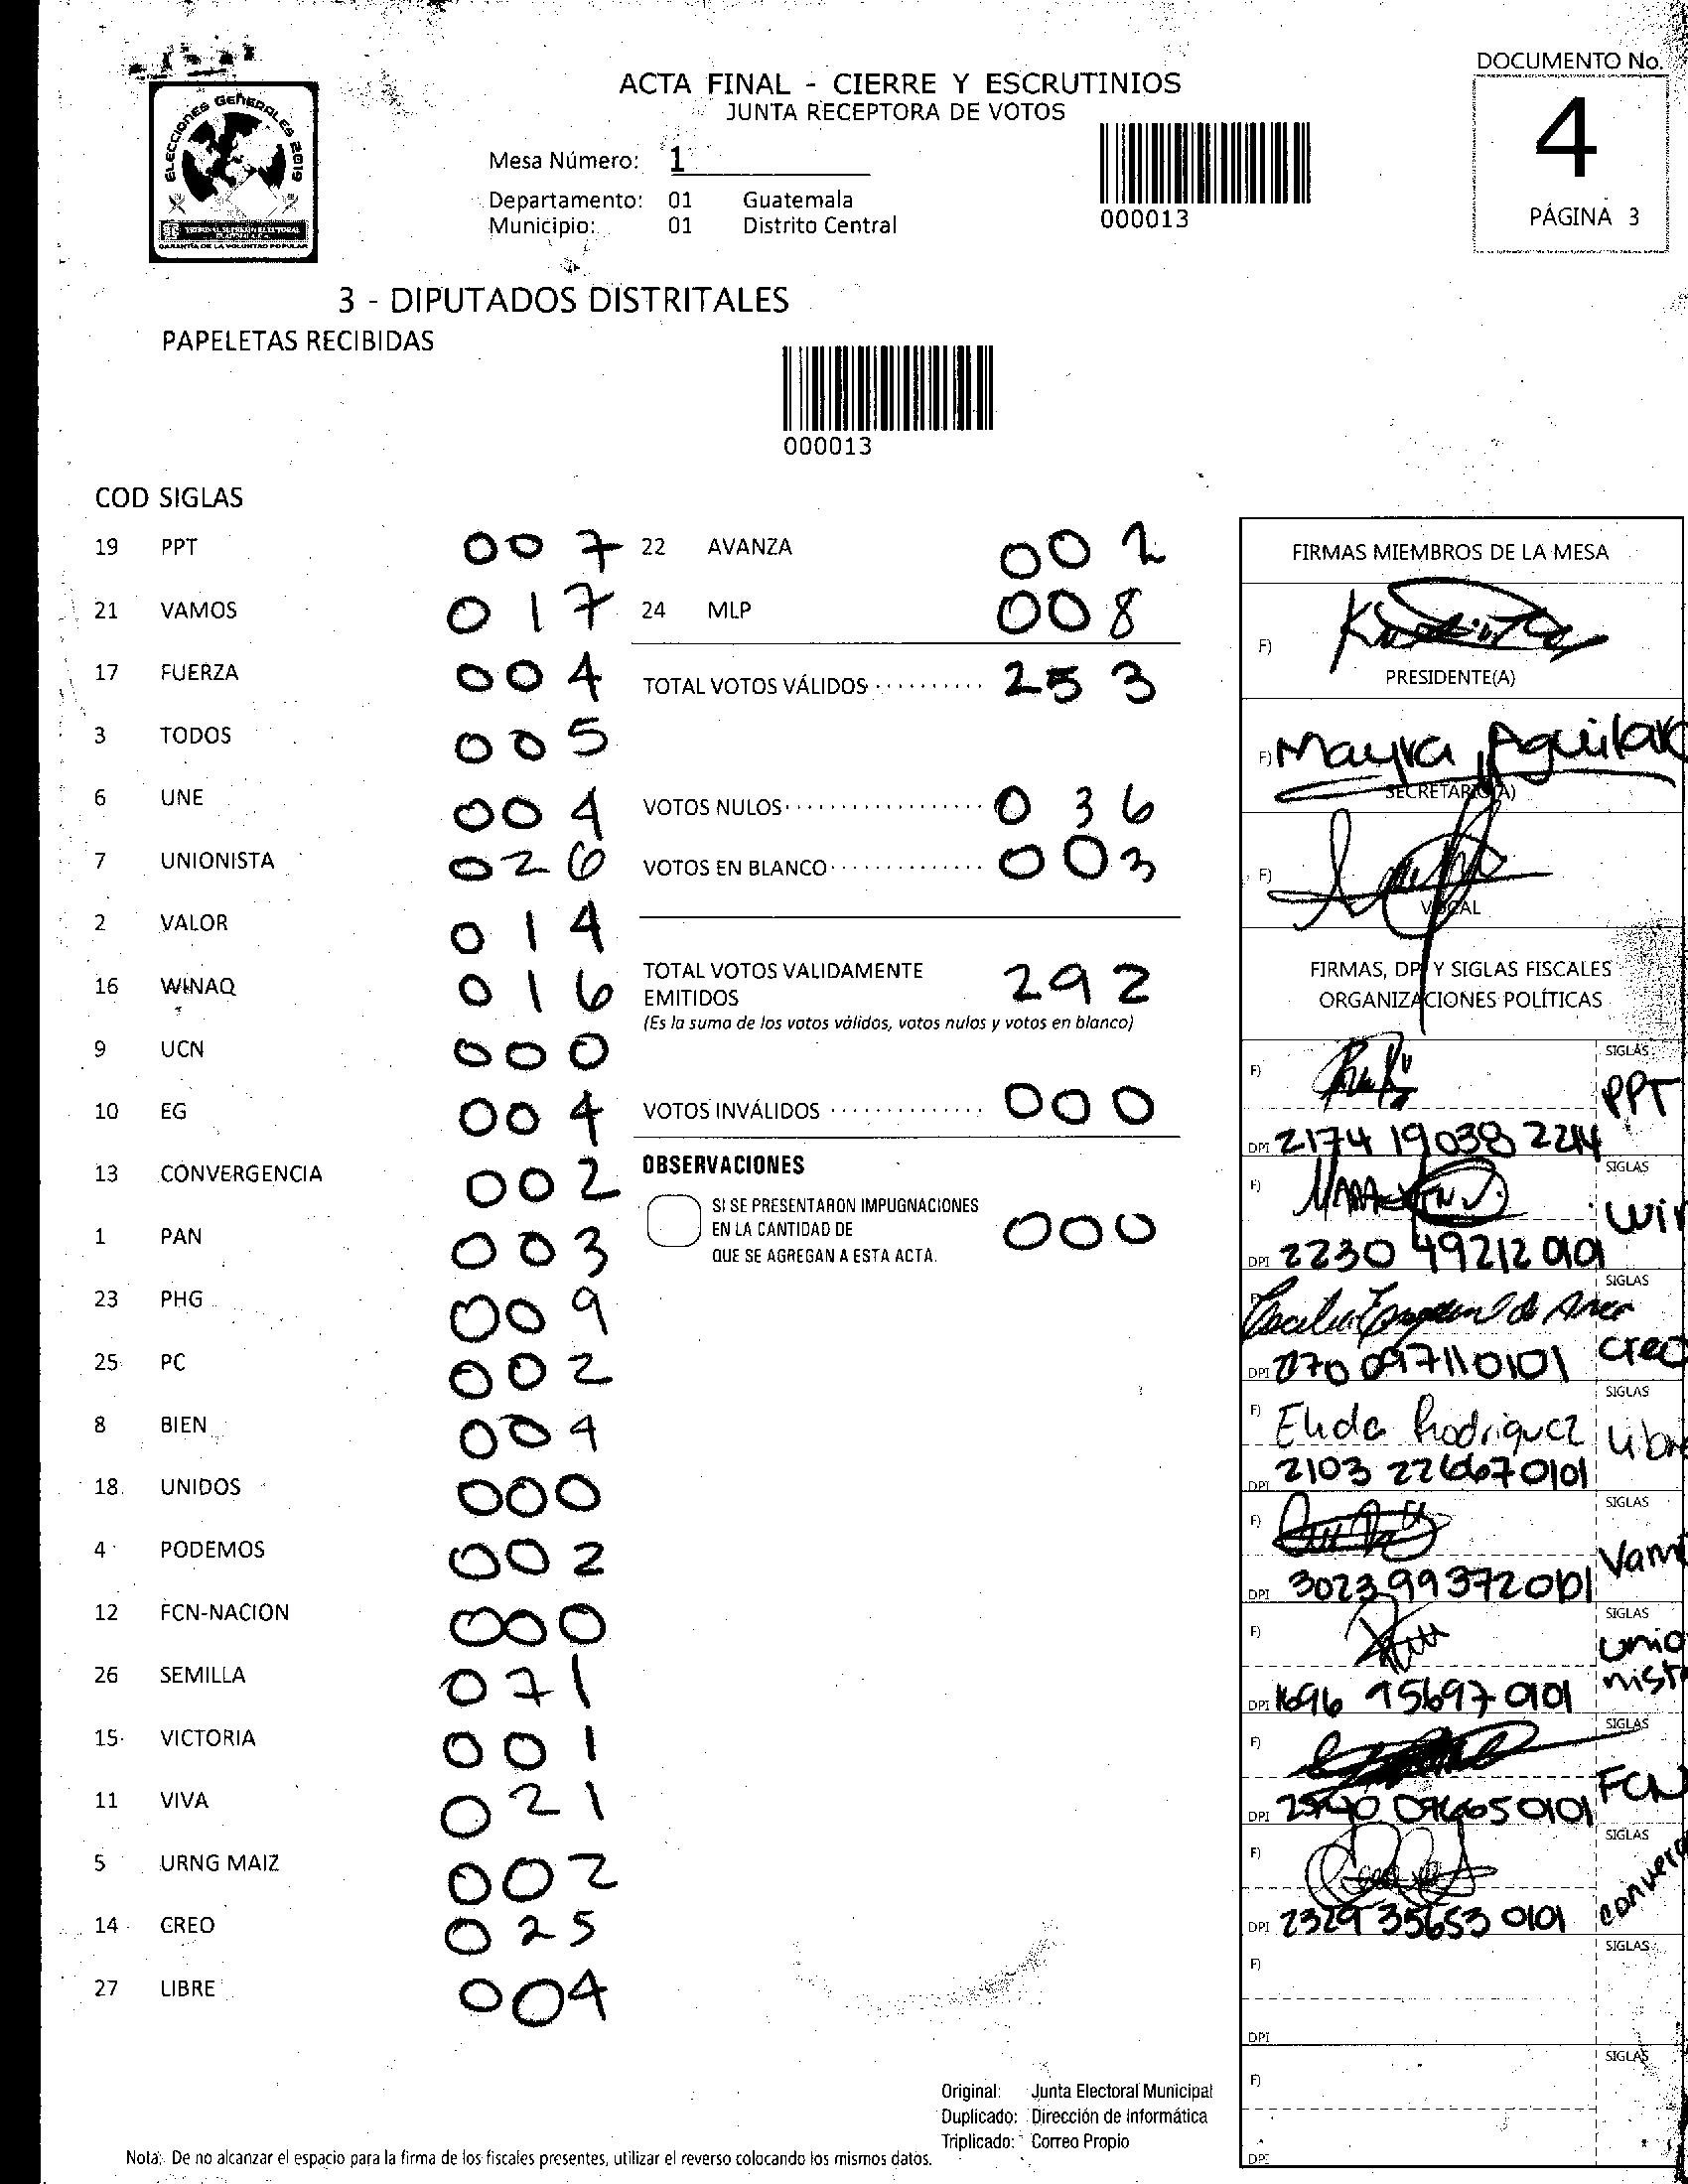 DOCUMENTO No.
4
PÁGINA 3
ELECCIONES GENERALES 2019
TRIBUNAL SUPREMO ELECTORAL
GARANTÍA DE LA VOLUNTAD POPULAR
ACTA FINAL - CIERRE Y ESCRUTINIOS
JUNTA RECEPTORA DE VOTOS
Mesa Número: 1
Departamento: 01 Guatemala
Municipio: 01 Distrito Central
000013
3 - DIPUTADOS DISTRITALES
PAPELETAS RECIBIDAS
000013
COD SIGLAS
19 PPT 007
21 VAMOS 017
17 FUERZA 004
3 TODOS 005
6 UNE 004
7 UNIONISTA 026
2 VALOR 014
16 WINAQ 016
9 UCN 000
10 EG 004
13 CONVERGENCIA 002
1 PAN 003
23 PHG 009
25 PC 002
8 BIEN 004
18 UNIDOS 000
4 PODEMOS 002
12 FCN-NACION 000
26 SEMILLA 071
15 VICTORIA 001
11 VIVA 021
5 URNG MAIZ 002
14 CREO 025
27 LIBRE 004
22 AVANZA 002
24 MLP 008
TOTAL VOTOS VÁLIDOS 253
VOTOS NULOS 036
VOTOS EN BLANCO 003
TOTAL VOTOS VALIDAMENTE
EMITIDOS 292
(Es la suma de los votos válidos, votos nulos y votos en blanco)
VOTOS INVÁLIDOS 000
OBSERVACIONES
SI SE PRESENTARON IMPUGNACIONES
EN LA CANTIDAD DE 000
QUE SE AGREGAN A ESTA ACTA.
FIRMAS MIEMBROS DE LA MESA
F)
PRESIDENTE(A)
F) Mayra Aguilar
SECRETARIO(A)
F)
VOCAL
FIRMAS, DPI Y SIGLAS FISCALES
ORGANIZACIONES POLÍTICAS
F) SIGLAS
PPT
DPI 2174 19038 2214
F) SIGLAS
Win
DPI 2230 49212 0101
SIGLAS
Creo
DPI
F) Elida Rodriguez SIGLAS
Libre
DPI 2103 22667 0101
F) SIGLAS
Vam
DPI 3023 99372 0101
F) SIGLAS
unio
nist
DPI 1696 15697 0101
F) SIGLAS
FCN
DPI
F) SIGLAS
converg
DPI 2329 35653 0101
F) SIGLAS
DPI
F) SIGLAS
DPI
Original: Junta Electoral Municipal
Duplicado: Dirección de Informática
Triplicado: Correo Propio
Nota: De no alcanzar el espacio para la firma de los fiscales presentes, utilizar el reverso colocando los mismos datos.